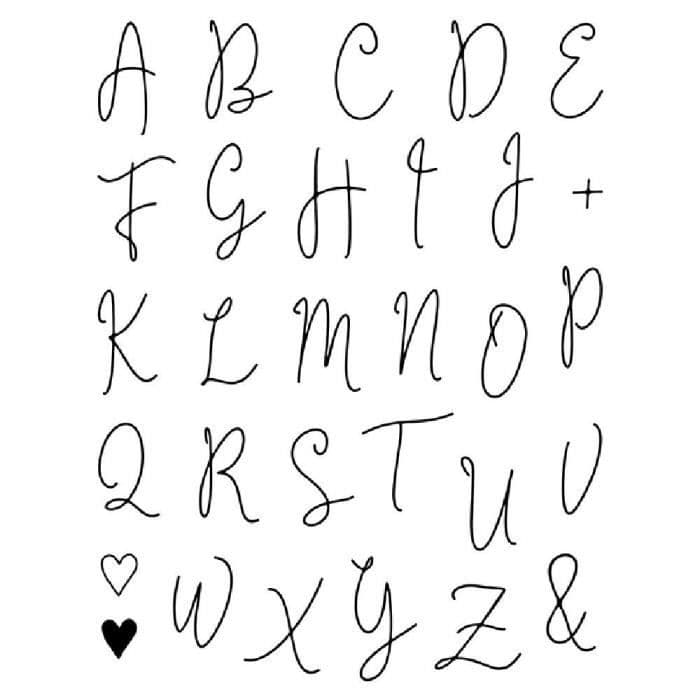 A B C D E
F G H I J +
K L M N O P
Q R S T U V
♡
♥ W X Y Z &